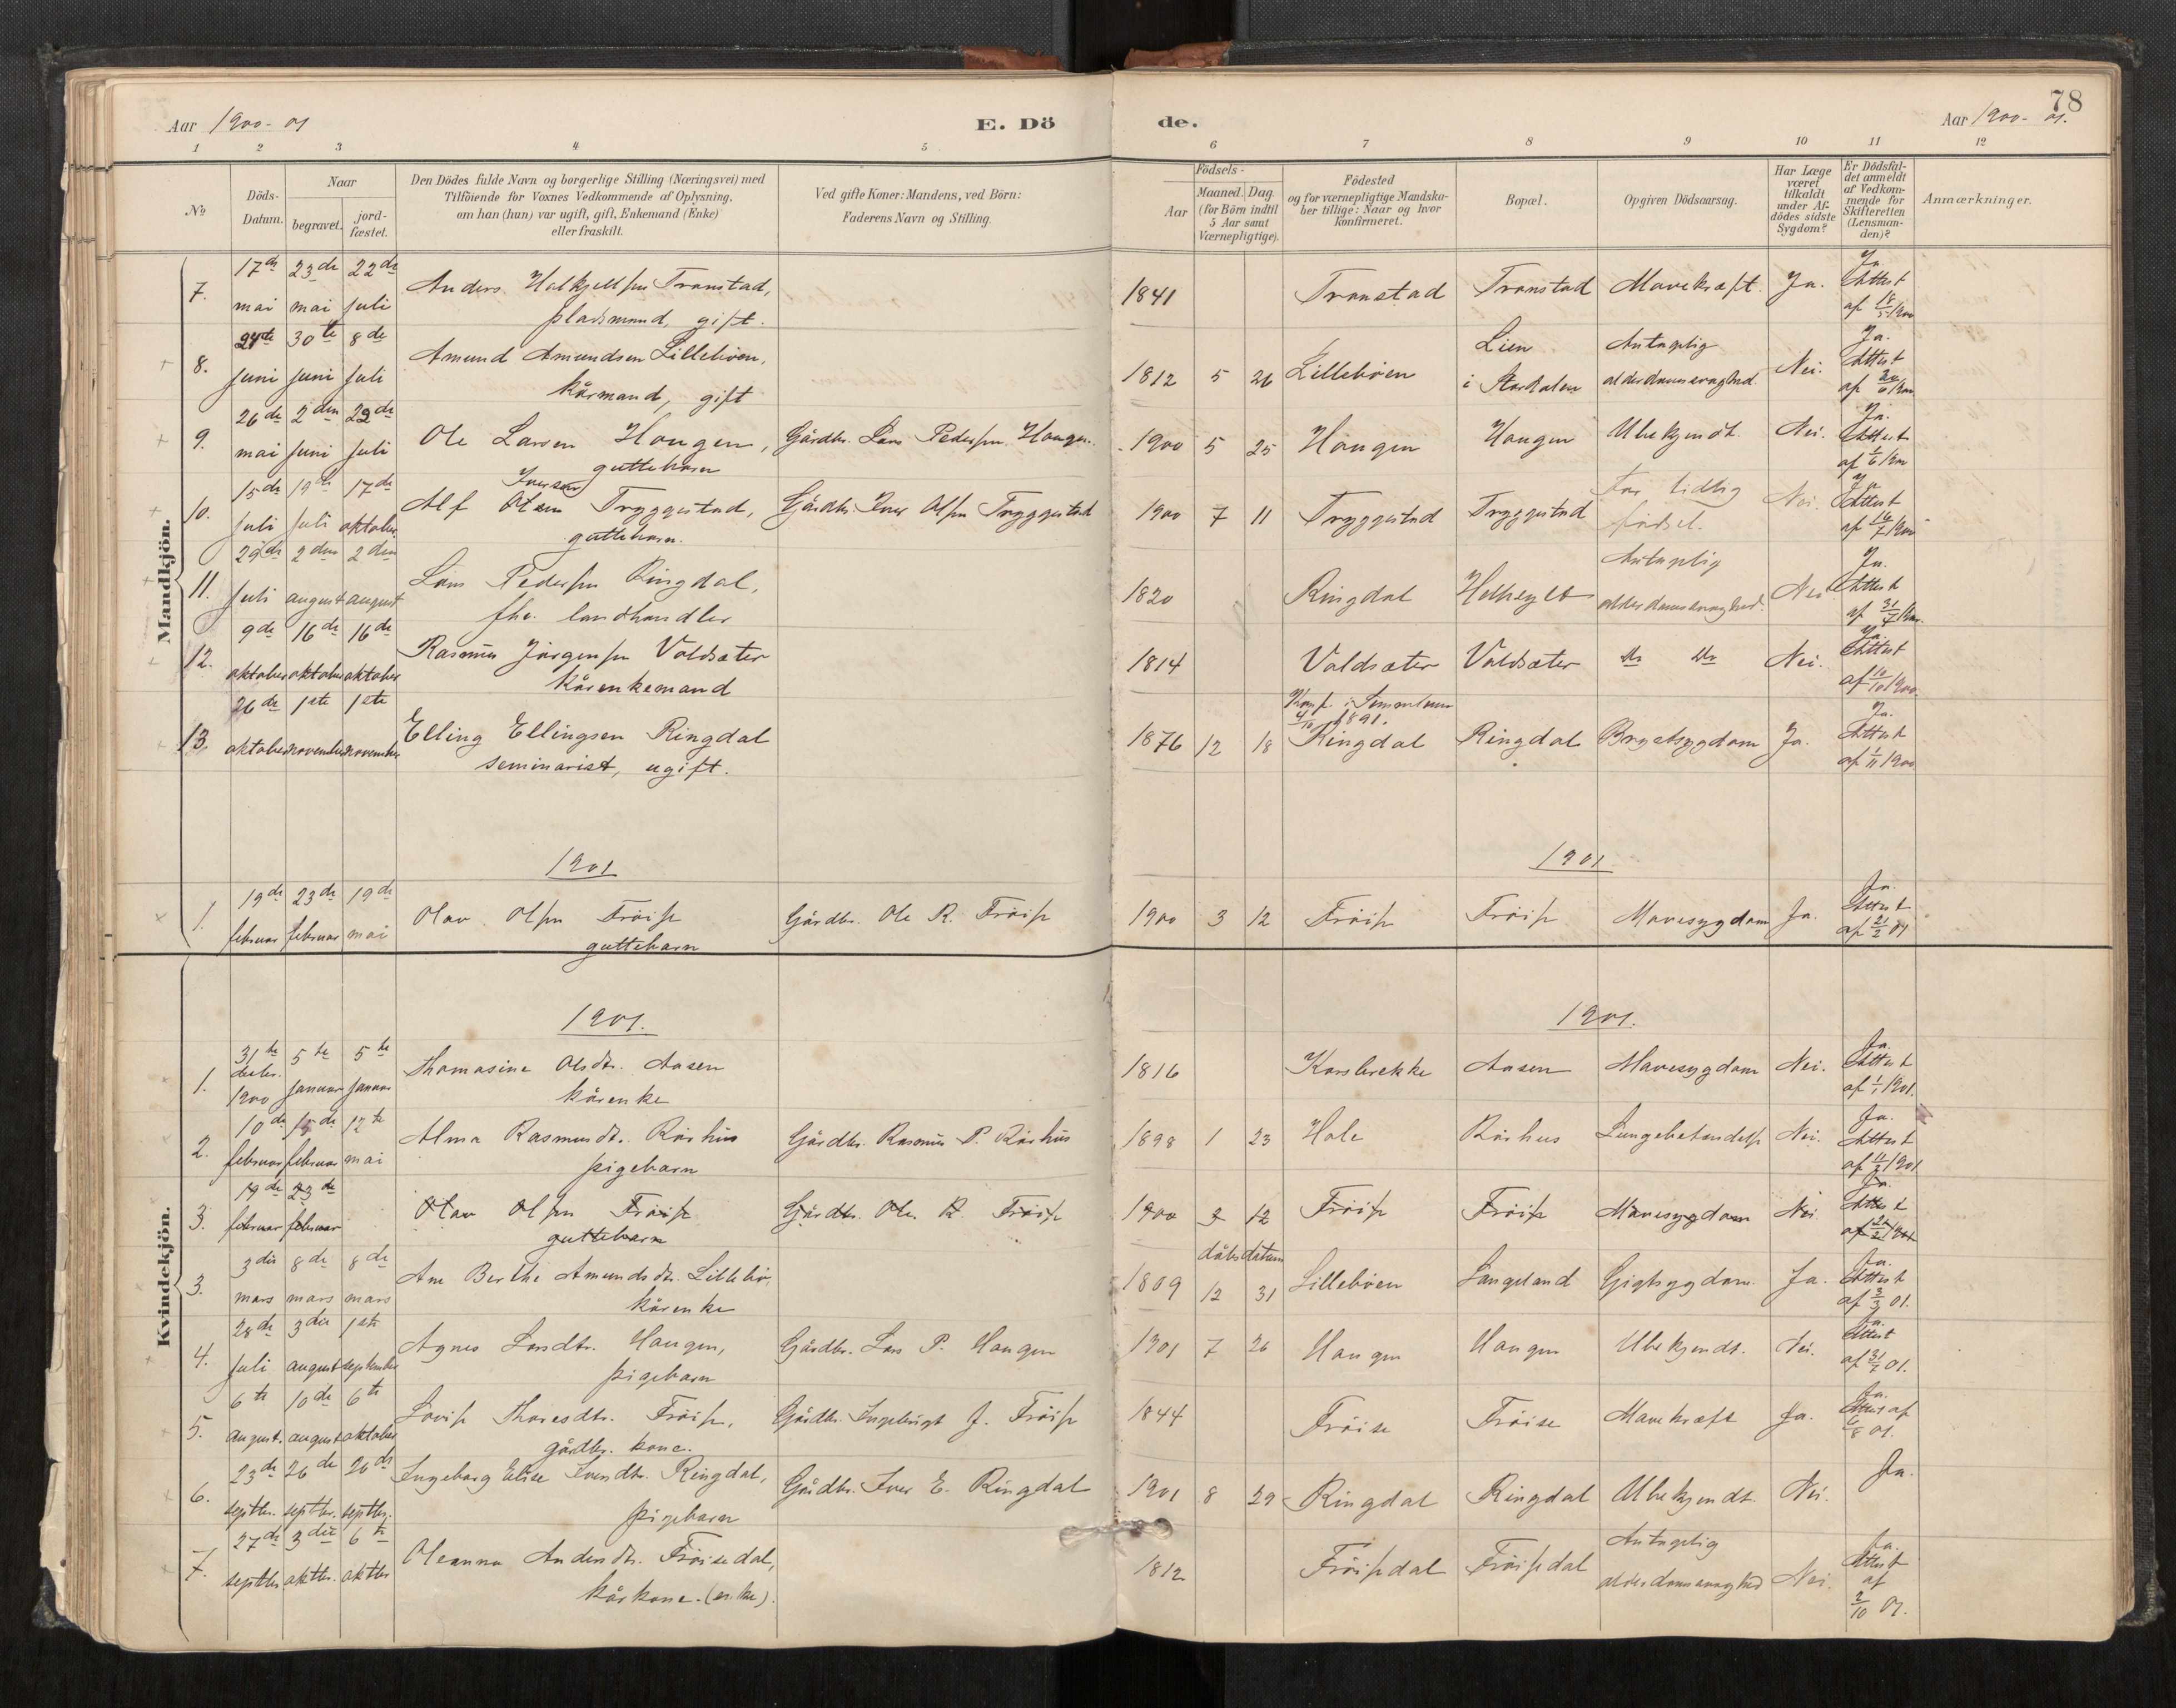 78
Aar 1900-01
E. Dö
de.
Aar 1900-01.
1 2 3 4 5 6 7 8 9 10 11 12
No
Döds-
Datum.
Naar
begravet.
jord-
fæstet.
Den Dödes fulde Navn og borgerlige Stilling (Næringsvei) med
Tilföiende for Voxnes Vedkommende af Oplysning,
om han (hun) var ugift, gift, Enkemand (Enke)
eller fraskilt.
Ved gifte Koner: Mandens, ved Börn:
Faderens Navn og Stilling.
Födsels-
Aar
Maaned. Dag.
(for Börn indtil
5 Aar samt
Værnepligtige).
Födested
og for værnepligtige Mandska-
ber tillige: Naar og hvor
konfirmeret.
Bopæl.
Opgiven Dödsaarsag.
Har Læge
været
tilkaldt
under Af-
dödes sidste
Sygdom?
Er Dödsfal-
det anmeldt
af Vedkom-
mende for
Skifteretten
(Lensman-
den)?
Anmærkninger.
Mandkjön.
7. 17de mai 23de mai 22de juli Anders Transtad,
pladsmand, gift. 1841 Transtad Transtad Mavekræft. Ja. Ja. Attest af 18/5 1900
8. juni 30te juni 8de juli Amund Amundsen Lilleböen,
kårmand, gift 1812 5 26 Lilleböen Lien
i Stordalen Antagelig
alderdomssvaghed. Nei. Ja. Attest
9. 26de mai 2den juni juli Ole Larsen Haugen,
guttebarn Gårdbr. Lars Pedersen Haugen. 1900 5 25 Haugen Haugen Ubekjendt. Nei. Ja. Attest af 1/6 1900
10. 15de juli 19de juli 17de oktober Iversen
Alf Olsen Tryggestad,
guttebarn. Gårdbr. Iver Olsen Tryggestad 1900 7 11 Tryggestad Tryggestad For tidlig
födsel. Nei. Ja Attest af 16/7 1900
11. 29de juli 2den august 2den august Lars Pedersen Ringdal,
fhv. landhandler 1820 Ringdal Hellesylt Antagelig
alderdomssvaghed. Nei Ja. Attest af 31/7 1900.
12. 9de oktober 16de oktober 16de oktober Rasmus Jörgensen Voldsæter
kårenkemand 1814 Voldsæter Voldsæter Do Do Nei. Ja. Attest af 10/10 1900.
13. 26de oktober 1ste november 1ste november Elling Ellingsen Ringdal
seminarist, ugift. 1876 12 18 Konf. i
4/10 1891.
Ringdal Ringdal Brystsygdom Ja. Ja. Attest af 1/11 1900
1901
1901
1. 19de februar 23de februar 19de mai Olav Olsen Fröise
guttebarn Gårdbr. Ole R. Fröise 1900 3 12 Fröise Fröise Mavesygdom Ja. Ja. Attest af 21/2 01
Kvindekjön.
1901.
1901.
1. 31te decbr. 1900 5te januar 5te januar Thomasine Olsdtr. Aasen
kårenke 1816 Korsbrekke Aasen Mavesygdom Nei. Ja. Attest af 1/1 1901.
2. 10de februar 15de februar 12te mai Alma Rasmusdtr. Rörhus
pigebarn Gårdbr. Rasmus P. Rörhus 1898 1 23 Hole Rörhus Lungebetændelse Nei. Ja. Attest af 11/2 1901
3. 19de februar 23de februar Olav Olsen Fröise
guttebarn Gårdbr. Ole R. Fröise 1900 3 12 Fröise Fröise Mavesygdom Nei Ja. Attest
dåbsdatum
3. 3die mars 8de mars 8de mars Ane Berthe Amundsdtr. Lillebö,
kårenke 1809 12 31 Lilleböen Langeland Gigtsygdom. Ja. Ja. Attest af 3/3 01.
4. 28de juli 3die august 1ste september Agnes Larsdtr. Haugen,
pigebarn Gårdbr. Lars P. Haugen 1901 7 26 Haugen Haugen Ubekjendt. Nei. Ja. Attest af 31/7 01.
5. 6te august. 10de august 6te oktober Lovise Thoresdtr. Fröise,
gårdbr. kone. Gårdbr. Ingebrigt J. Fröise 1844 Fröise Fröise Mavekræft Ja. Ja. Attest af 01.
6. 23de septbr. 26de septbr. 26de septbr. Ingeborg Elise Iversdtr. Ringdal,
pigebarn Gårdbr. Iver E. Ringdal 1901 8 29 Ringdal Ringdal Ubekjendt. Nei. Ja.
7. 27de septbr 3die oktbr. 6te oktbr Oleanna Andersdtr. Fröisedal,
kårkone. (enke). 1812 Fröisedal Fröisedal Antagelig
alderdomssvaghed Nei. Ja. Attest af 2/10 01.